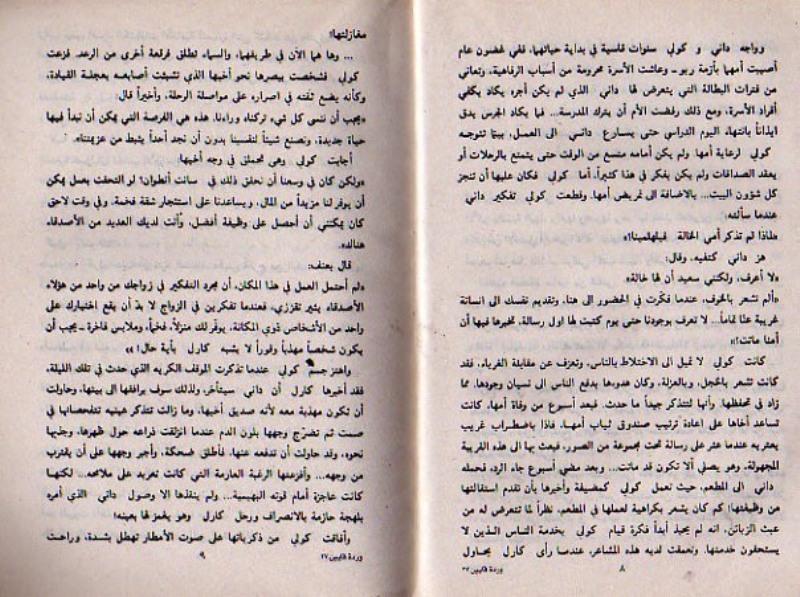 وواجه داني و كولي سنوات قاسية في بداية حياتهما، ففي غضون عام
أصيبت أمهما بأزمة ربو - وعاشت الأسرة محرومة من أسباب الرفاهية، وتعاني
من فترات البطالة التي يتعرض لها داني الذي لم يكن أجره يكاد يكفي
أفراد الأسرة، ومع ذلك رفضت الأم أن يترك المدرسة... فما يكاد الجرس يدق
ايذاناً بانتهاء اليوم الدراسي حتى يسارع داني الى العمل، بينما تتوجه
كولي لرعاية أمها. ولم يكن أمامه متسع من الوقت حتى يتمتع بالرحلات أو
يعقد الصداقات ولم يكن يفكر في هذا كثيراً، أما كولي فكان عليها أن تنجز
كل شؤون البيت... بالاضافة الى تمريض أمها. وقطعت كولي تفكير داني
عندما سألته:
«لماذا لم تذكر أمي الخالة فيلهلمينا؟»
هز داني كتفيه، وقال:
«لا أعرف، ولكنني سعيد أن لها خالة»
«ألم تشعر بالخوف، عندما فكّرت في الحضور الى هنا، وتقديم نفسك الى انسانة
غريبة عنّا تماماً... لا تعرف بوجودنا حتى يوم كتبت لها اول رسالة، تخبرها فيها أن
أمنا ماتت؟!»
كانت كولي لا تميل الى الاختلاط بالناس، وتعزف عن مقابلة الغرباء، فقد
كانت تشعر بالخجل، وبالعزلة، وكان هدوءها يدفع الناس الى نسيان وجودها، مما
زاد في تحفظها. وأنها لتتذكر جيداً ما حدث. فبعد أسبوع من وفاة أمها، كانت
تساعد أخاها على إعادة ترتيب صندوق ثياب أمهما، فاذا باضطراب غريب
يعتريه عندما عثر على رسالة تحت مجموعة من الصور، فبعث بها الى هذه القريبة
المجهولة. وهو يصلي ألا تكون قد ماتت... وبعد مضي أسبوع جاء الرد، فحمله
داني الى المطعم، حيث تعمل كولي كمضيفة وأخبرها بأن تقدم استقالتها
من وظيفتها! كم كان يشعر بكراهية لعملها في المطعم، نظراً لما تتعرض له من
عبث الزبائن، انه لم يحبذ أبداً فكرة قيام كولي بخدمة الناس الذين لا
يستحقون خدمتها. وتعمقت لديه هذه المشاعر، عندما رأى كارل يحاول
٨
وردة قايين ٢٧
مغازلتها!
... وها هما الآن في طريقهما، والسماء تطلق فرقعة أخرى من الرعد. فزعت
كولي فشخصت ببصرها نحو أخيها الذي تشبثت أصابعه بعجلة القيادة،
وكأنه يضع ثقته في اصراره على مواصلة الرحلة، وأخيراً قال:
«يجب أن ننسى كل شيء تركناه وراءنا. هذه هي الفرصة التي يمكن أن نبدأ فيها
حياة جديدة، ونصنع شيئاً لنفسينا بدون أن نجد أحداً يثبط من عزيمتنا».
أجابت كولي وهي تحملق في وجه أخيها
«ولكن كان في وسعنا أن نحقق ذلك في سانت أنطوان! لو التحقت بعمل يمكن
أن يوفر لنا مزيداً من المال، ويساعدنا على استئجار شقة فخمة. وفي وقت لاحق
كان يمكنني أن أحصل على وظيفة أفضل، وأنت لديك العديد من الأصدقاء
هناك».
قال بعنف:
«لم أحتمل العمل في هذا المكان، أن مجرد التفكير في زواجك من واحد من هؤلاء
الأصدقاء يثير تقززي، فعندما تفكرين في الزواج لا بدّ أن يقع اختيارك على
واحد من الأشخاص ذوي المكانة، يوفر لك منزلاً، فخماً، وملابس فاخرة - يجب أن
يكون شخصاً مهذباً وقوراً لا يشبه كارل بأية حال! »
واهتز جسم كولي عندما تذكرت الموقف الكريه الذي حدث في تلك الليلة،
فقد أخبرها كارل أن داني سيتأخر، ولذلك سوف يرافقها الى بيتها، وحاولت
أن تكون مهذبة معه لأنه صديق أخيها، وما زالت تتذكر عينيه تتفحصانها في
صمت ثم تضرّج وجهها بلون الدم عندما انزلقت ذراعه حول ظهرها، وجذبها
نحوه، وقد حاولت أن تدفعه عنها، فأطلق ضحكة، وأجبر وجهها على أن يقترب
من وجهه... وأفزعتها الرغبة العارمة التي كانت تعربد على ملامحه... لكنها
كانت عاجزة أمام قوته البهيمية... ولم ينقذها الا وصول داني الذي أمره
بلهجة حازمة بالانصراف ورحل كارل وهو يغمز لها بعينه!
وأفاقت كولي من ذكرياتها على صوت الأمطار تهطل بشدة، وراحت
٩
وردة قايين ٢٧